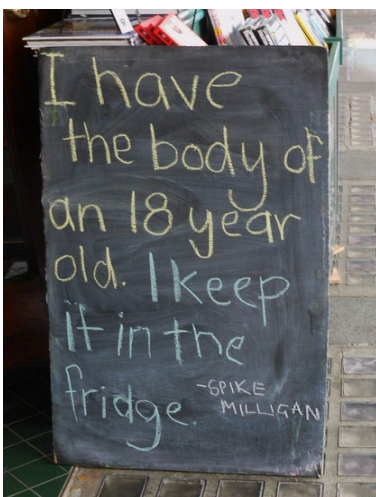 I have
the body of
an 18 year
old. I keep
it in the
fridge. -SPIKE
MILLIGAN